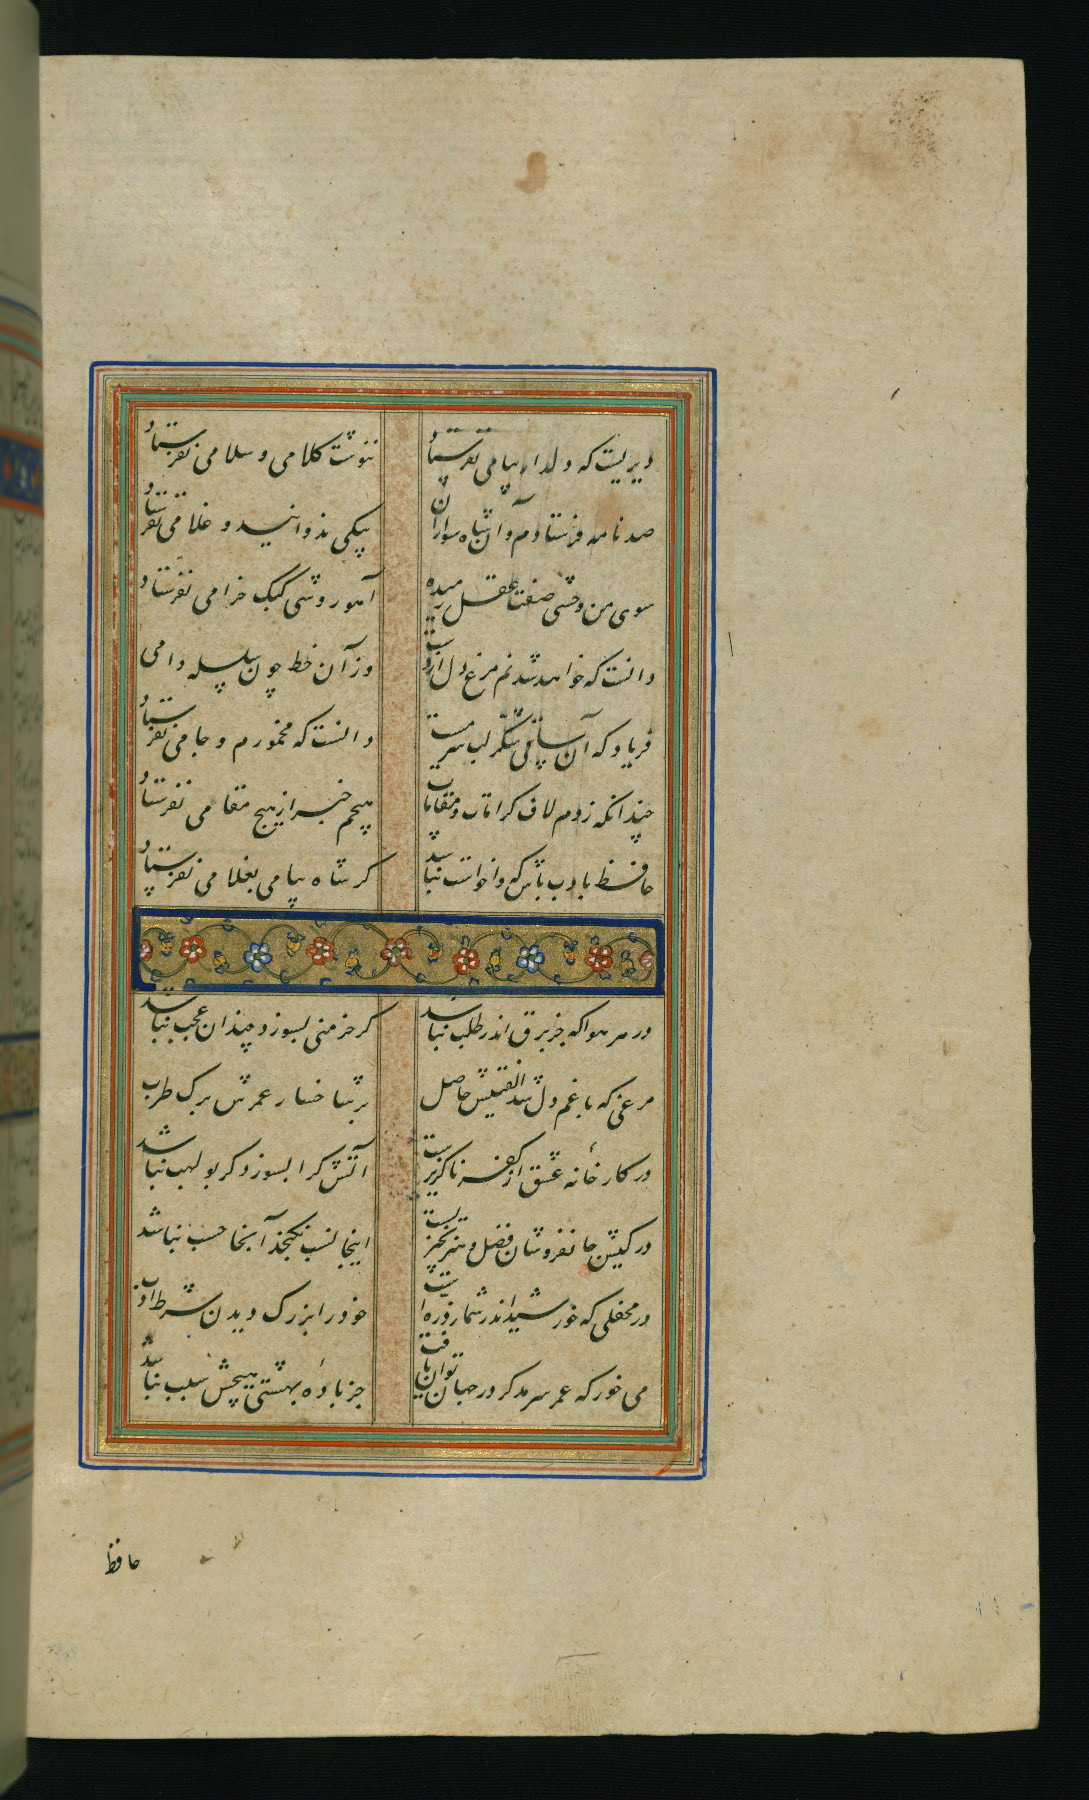 دیریست که دلدار پیامی نفرستاد ننوشت کلامی و سلامی نفرستاد
صد نامه فرستادم و آن شاه سواران پیکی ندوانید و غلامی نفرستاد
سوی من وحشی صفت عقل رمیده آهو روشی کبک خرامی نفرستاد
دانست که خواهد شدنم مرغ دل از دست وز آن خط چون سلسله دامی
فریاد که آن ساقی شکر لب سرمست دانست که مخمورم و جامی نفرستاد
چندانکه زدم لاف کرامات و مقامات هیچم خبر از هیچ مقامی نفرستاد
حافظ بادب باش که واخواست نباشد کر شاه پیامی بغلامی نفرستاد
در هر هوا که جز برق اندر طلب نباشد کر خرمنی بسوزد چندان عجب نباشد
مرغی که با غم دل شد الفتیش حاصل بر شاخسار عمرش برک طرب
در کارخانه عشق از کفر ناکزیرست آتش کرا بسوزد کر بولهب نباشد
در کیش جانفروشان فضل و هنر نچیزست اینجا نسب نکنجد آنجا حسب نباشد
در محفلی که خورشید اندر شمار ذره است خود را بزرک دیدن شرط ادب
می خور که عمر سرمد کر در جهان توان یافت جز باده بهشتی هیچش سبب نباشد
حافظ